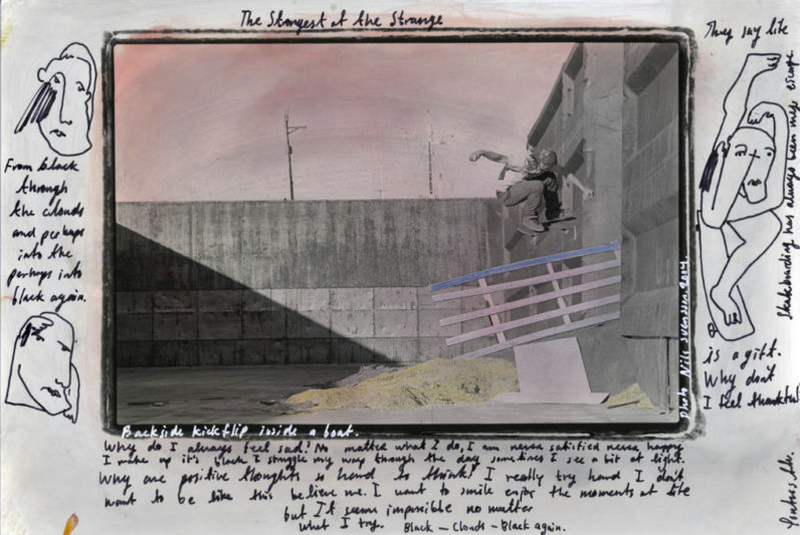 The Strangest of the Strange
From black
through
the clouds
and perhaps
into the
perhaps into
black again.
Backside kickflip inside a boat.
Photo Nils Svensson 2014
They say life
is a gift.
Why don't
I feel thankful
Skateboarding has always been my escape.
Why do I always feel sad? No matter what I do, I am never satisfied never happy
I wake up it's black I struggle my way through the day sometimes I see a bit of light.
Why are positive thoughts so hard to think? I really try hard I don't
want to be like this believe me. I want to smile enjoy the moments of life
but It seems impossible no matter
what I try. Black – Clouds – Black again.
Pontus Alv.